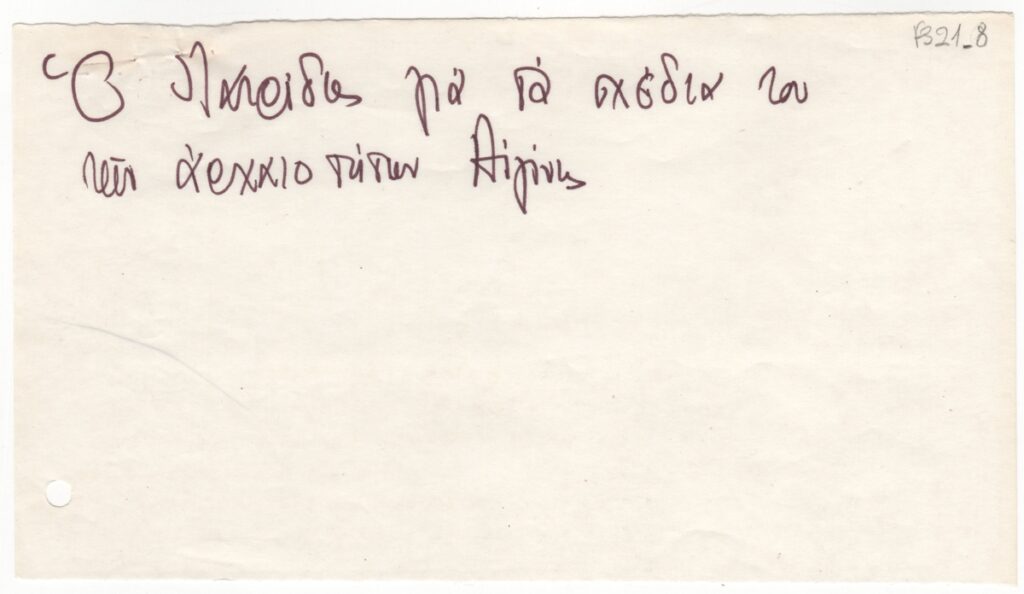 F321_8
Ὁ Πατρίδης γιά τά σχέδια του
τῶν ἀρχαιοτήτων Αἰγίνης